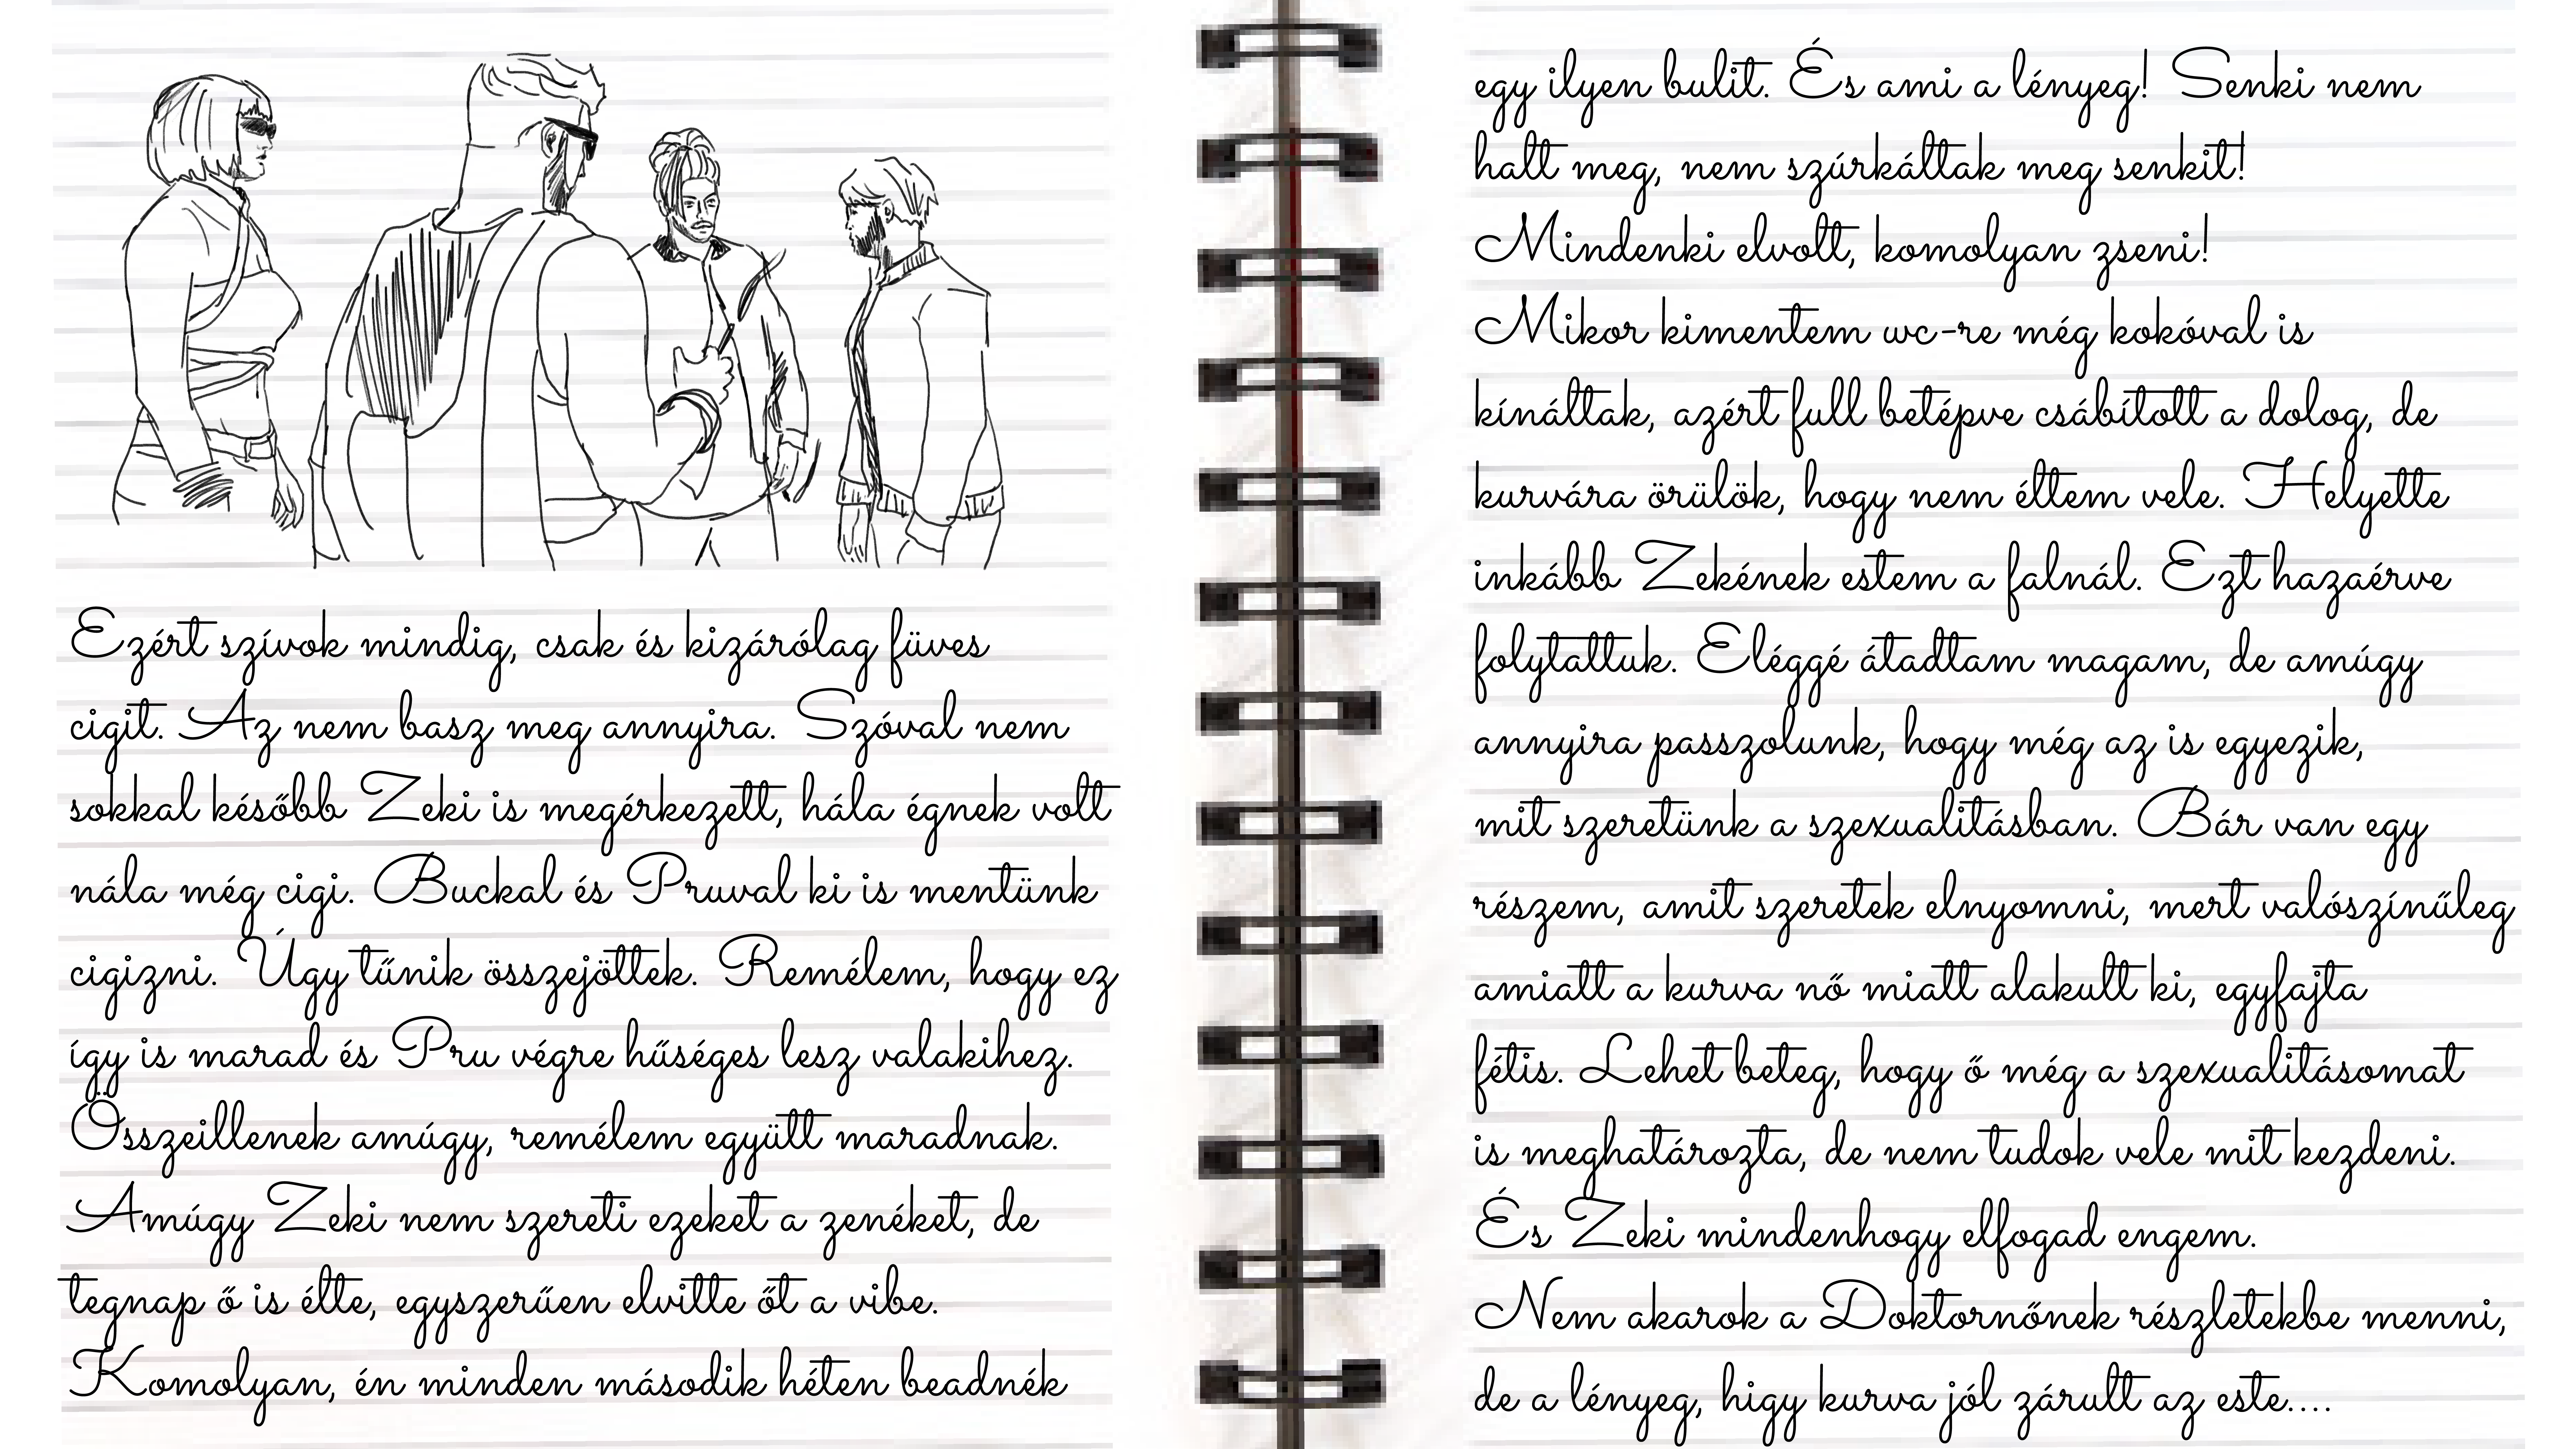 Ezért szívok mindig, csak és kizárólag füves
cigit. Az nem basz meg annyira. Szóval nem
sokkal később Zeki is megérkezett, hála égnek volt
nála még cigi. Buckal és Pruval ki is mentünk
cigizni. Úgy tűnik összejöttek. Remélem, hogy ez
így is marad és Pru végre hűséges lesz valakihez.
Összeillenek amúgy, remélem együtt maradnak.
Amúgy Zeki nem szereti ezeket a zenéket, de
tegnap ő is élte, egyszerűen elvitte őt a vibe.
Komolyan, én minden második héten beadnék
egy ilyen bulit. És ami a lényeg! Senki nem
halt meg, nem szúrkáltak meg senkit!
Mindenki elvolt, komolyan zseni!
Mikor kimentem wc-re még kokóval is
kínáltak, azért full betépve csábított a dolog, de
kurvára örülök, hogy nem éltem vele. Helyette
inkább Zekének estem a falnál. Ezt hazaérve
folytattuk. Eléggé átadtam magam, de amúgy
annyira passzolunk, hogy még az is egyezik,
mit szeretünk a szexualitásban. Bár van egy
részem, amit szeretek elnyomni, mert valószínűleg
amiatt a kurva nő miatt alakult ki, egyfajta
fétis. Lehet beteg, hogy ő még a szexualitásomat
is meghatározta, de nem tudok vele mit kezdeni.
És Zeki mindenhogy elfogad engem.
Nem akarok a Doktornőnek részletekbe menni,
de a lényeg, higy kurva jól zárult az este....